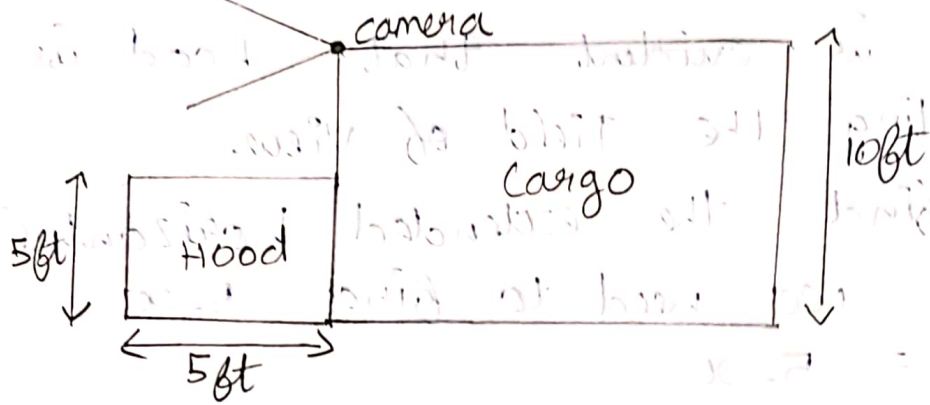 camera
Cargo
10ft
5ft
Hood
5ft